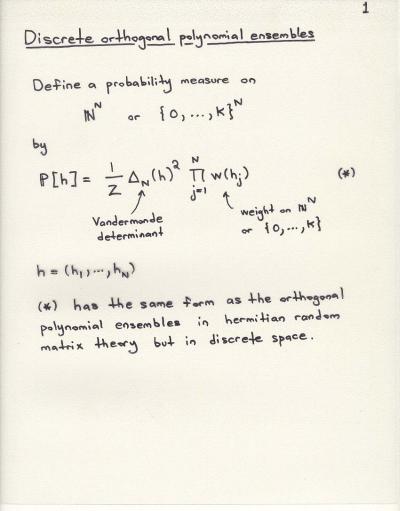 1
Discrete orthogonal polynomial ensembles
Define a probability measure on
ℕ^N or {0,...,K}^N
by
P[h] = 1/Z Δ_N(h)^2 ∏_{j=1}^N w(h_j) (*)
Vandermonde determinant
weight on ℕ^N or {0,...,K}
h = (h_1,...,h_N)
(*) has the same form as the orthogonal
polynomial ensembles in hermitian random
matrix theory but in discrete space.